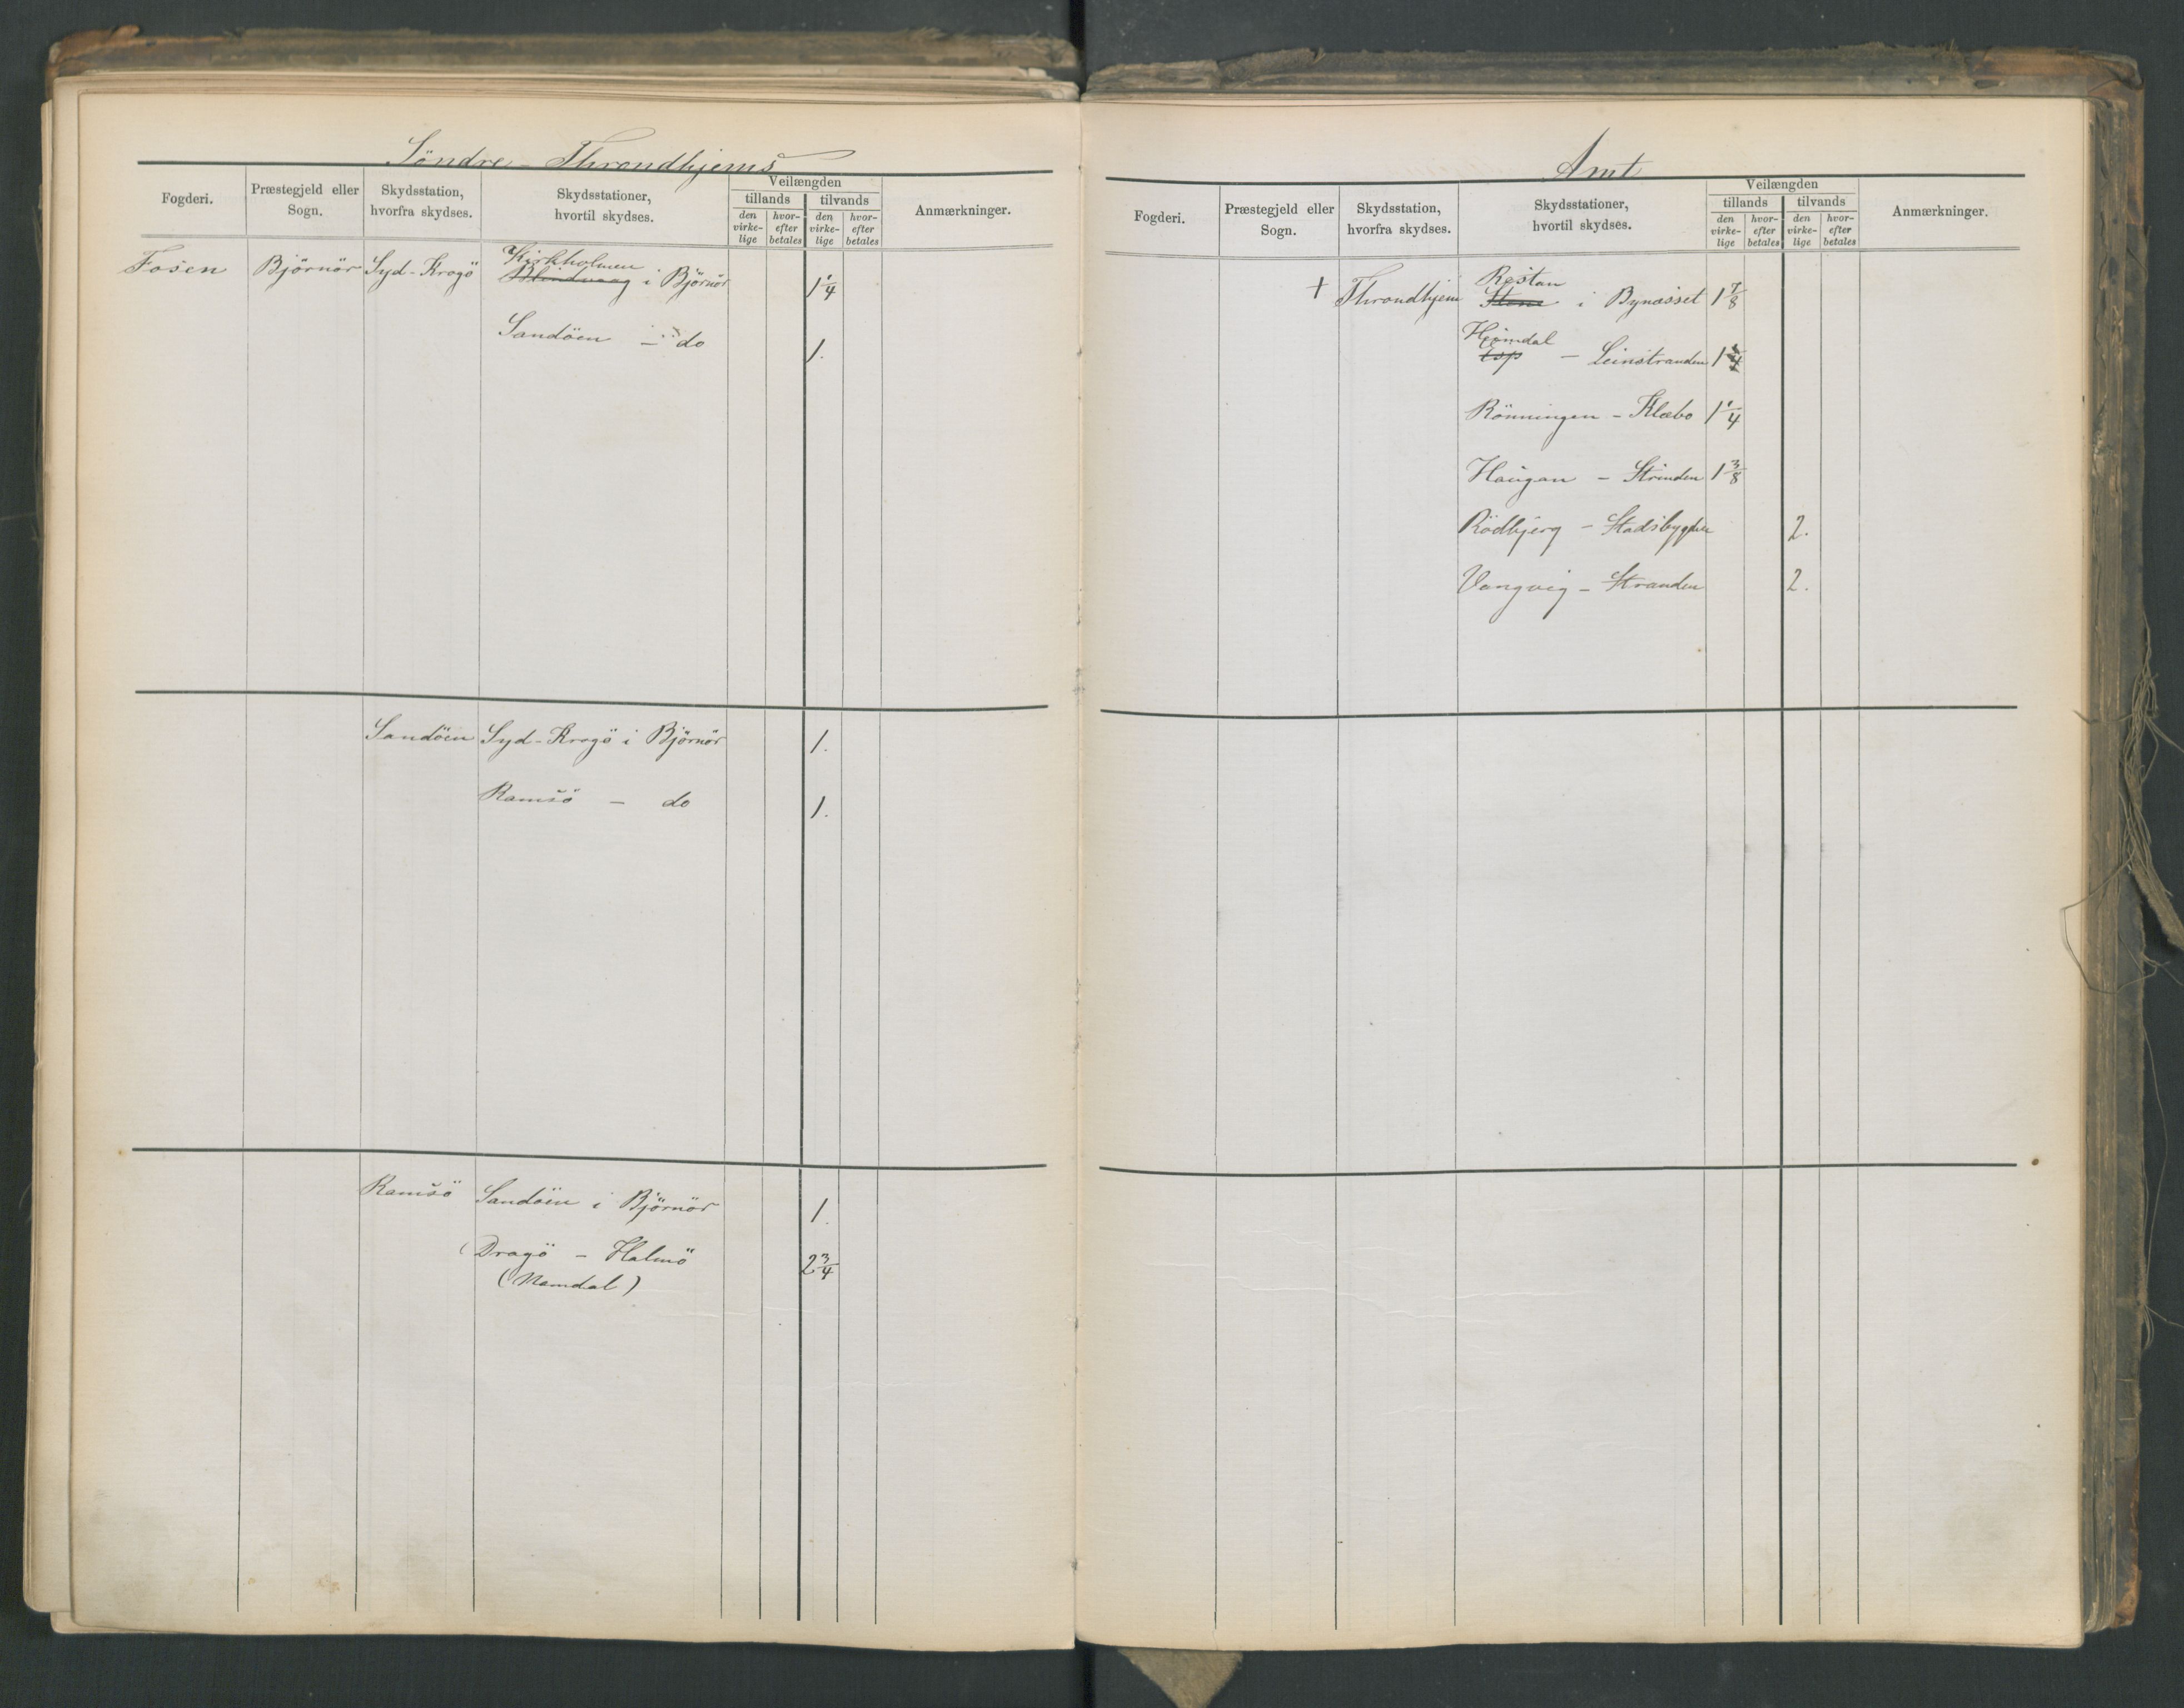 Söndre - Throndhjems
Fogderi. Præstegjeld eller Sogn. Skydsstation, hvorfra skydses. Skydsstationer, hvortil skydses. Veilængden tillands den virke-lige hvor-efter betales tilvands den virke-lige hvor-efter betales Anmærkninger.
Kirkholmen
Fosen Björnör Syd-Krogö Blindvaag i Björnör 1 1/4
Sandöen - do 1.
Sandöen Syd-Krogö i Björnör 1.
Ramsö - do 1.
Ramsö Sandöen i Björnör 1.
(Dragö - Halmö 2 3/4
(Namdal)
Amt
Fogderi. Præstegjeld eller Sogn. Skydsstation, hvorfra skydses. Skydsstationer, hvortil skydses. Veilængden tillands den virke-lige hvor-efter betales tilvands den virke-lige hvor-efter betales Anmærkninger.
Rostan
+ Throndhjem i Bynæsset 1 7/8
Hjemdal
Esp - Leinstranden 1
Rönningen - Klæbo 1 1/4
Haugan - Strinden 1 3/8
Rödbjerg - Stadsbygden 2.
Vangvig - Stranden 2.